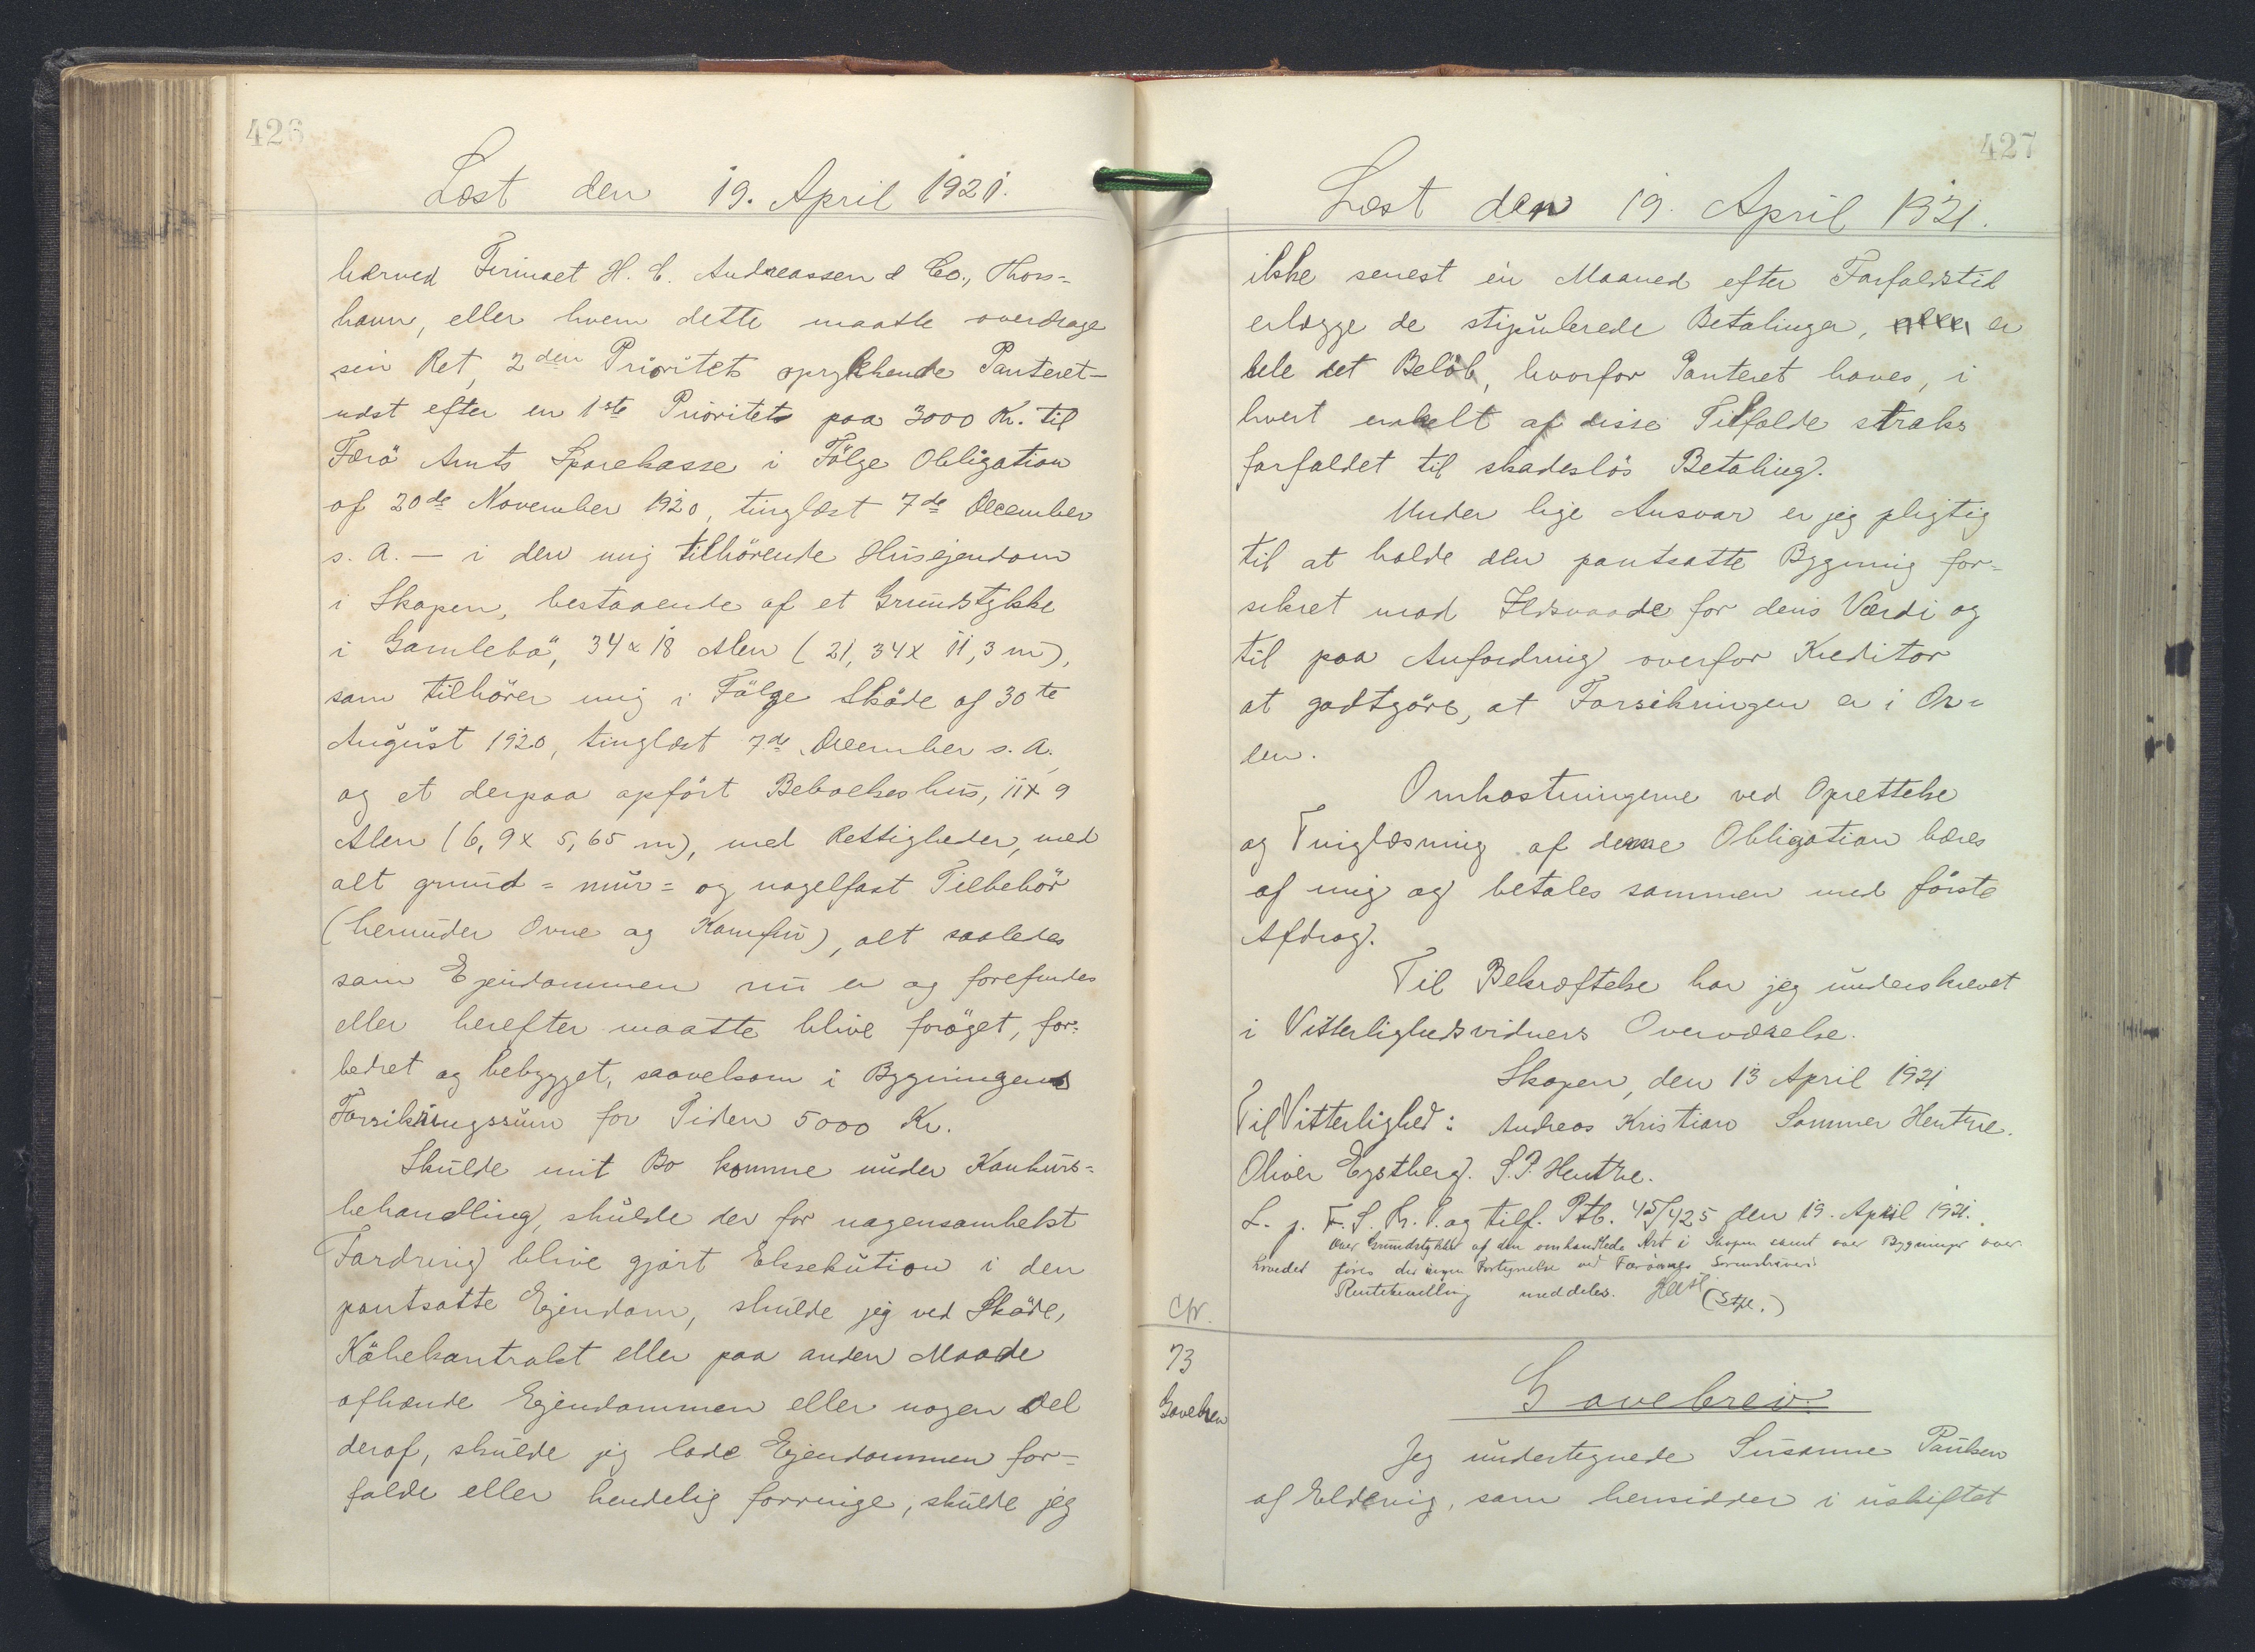 426
Læst den 19. April 1921.
herved Firmaet H. C. Andreassen & Co., Thors-
havn, eller hvem dette maatte overdrage
sin Ret, 2den Prioritets oprykkende Panteret -
næst efter en 1ste Prioritet paa 3000 Kr. til
Færø Amts Sparekasse i Følge Obligation
af 20de November 1920, tinglæst 7de December
s. A. - i den mig tilhörende Husejendom
i Skopen, bestaaende af et Grundstykke
i Gamlebø, 34 x 18 Alen (21,34 x 11,3 m),
som tilhörer mig i Følge Sköde af 30te
August 1920, tinglæst 7de December s. A.
og et derpaa opfört Beboelseshus, 11 x 9
Alen (6,9 x 5,65 m), med Rettigheder, med
alt grund = mur = og nagelfast Tilbehör
(herunder Ovne og Komfur), alt saaledes
som Ejendommen nu er og forefindes
eller herefter maatte blive foröget, for-
bedret og bebygget, saavelsom i Bygningens
Forsikringssum for Tiden 5000 Kr.
Skulde mit Bo komme under Konkurs-
behandling, skulde der for nogensomhelst
Fordring blive gjort Eksekution i den
pantsatte Ejendom, skulde jeg ved Sköde,
Köbekontrakt eller paa anden Maade
afhænde Ejendommen eller nogen Del
deraf, skulde jeg lade Ejendommen for-
falde eller kendelig forringe, skulde jeg
427
Læst den 19. April 1921.
ikke senest én Maaned efter Forfaldstid
erlægge de stipulerede Betalinger, er
hele det Belöb, hvorfor Panteret haves, i
hvert enkelt af disse Tilfælde straks
forfaldet til skadeslös Betaling.
Under lige Ansvar er jeg pligtig
til at holde den pantsatte Bygning for-
sikret mod Ildsvaade for dens Værdi og
til paa Anfordring overfor Kreditor
at godtgöre, at Forsikringen er i Or-
den.
Omkostningerne ved Oprettelse
og Tinglæsning af denne Obligation bæres
af mig og betales sammen med förste
Afdrag.
Til Bekræftelse har jeg underskrevet
i Vitterlighedsvidners Overværelse.
Skopen, den 13 April 1921
Til Vitterlighed: Andreas Kristian Sommer Hentze.
Oliver Eystberg. S. P. Hentze.
L. p. F. S. R. P. og tilf. Ptb. 45/425 den 19. April 1921.
Over Grundstykker af den omhandlede Art i Skopen samt over Bygninger over-
hovedet föres der ingen Fortegnelse ved Færöernes Sorenskriveri.
Rentebevilling meddeles. (Stpl.)
Cfr.
73
Gavebrev
Gavebrev.
Jeg undertegnede Susanne Paulsen
af Eldevig, som hensidder i uskiftet